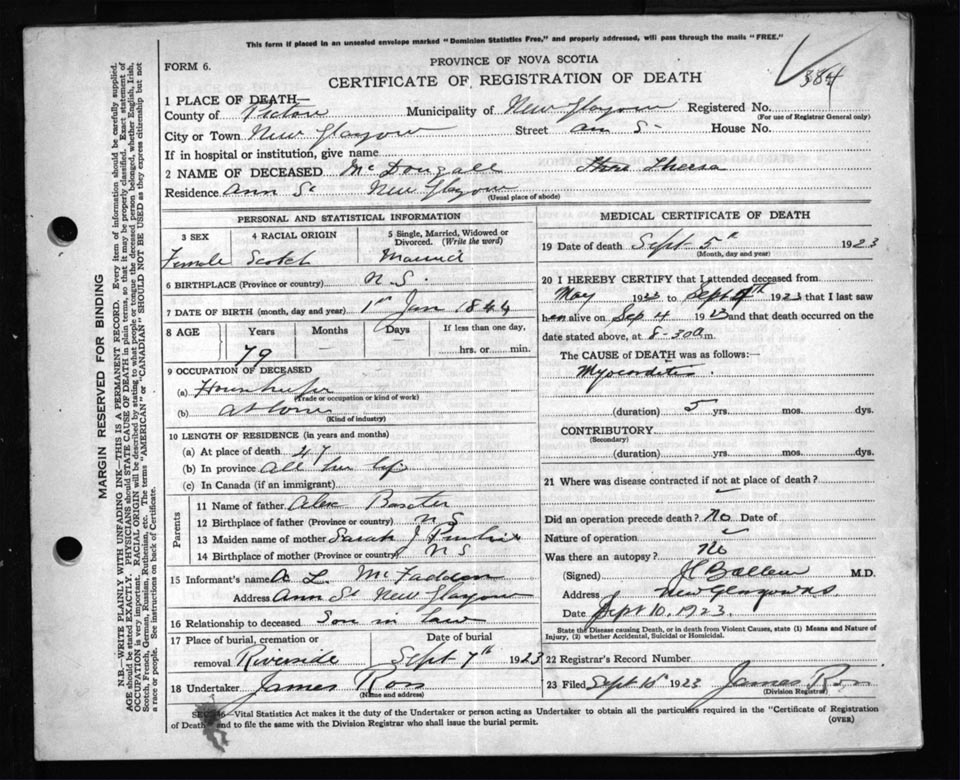 This form if placed in an unsealed envelope marked "Dominion Statistics Free," and properly addressed, will pass through the mails "FREE."
384
FORM 6.
PROVINCE OF NOVA SCOTIA
CERTIFICATE OF REGISTRATION OF DEATH
1 PLACE OF DEATH—
County of Pictou Municipality of New Glasgow Registered No.
(For use of Registrar General only)
City or Town New Glasgow Street Ann St House No.
If in hospital or institution, give name
2 NAME OF DECEASED McDougall Theresa
Residence Ann St New Glasgow
(Usual place of abode)
PERSONAL AND STATISTICAL INFORMATION
3 SEX 4 RACIAL ORIGIN 5 Single, Married, Widowed or Divorced. (Write the word)
Female Scotch Married
6 BIRTHPLACE (Province or country) N.S.
7 DATE OF BIRTH (month, day and year) 1st Jan 1844
8 AGE Years Months Days If less than one day,
79 hrs. or min.
9 OCCUPATION OF DECEASED
(a) Housekeeper
(Trade or occupation or kind of work)
(b) at home
(Kind of industry)
10 LENGTH OF RESIDENCE (in years and months)
(a) At place of death 47
(b) In province All her life
(c) In Canada (if an immigrant)
Parents
11 Name of father Alex Baxter
12 Birthplace of father (Province or country) N S
13 Maiden name of mother Sarah J
14 Birthplace of mother (Province or country) N S
15 Informant's name A L McFadden
Address Ann St New Glasgow
16 Relationship to deceased Son in law
17 Place of burial, cremation or removal Riverside Date of burial Sept 7th 1923
18 Undertaker James Ross
(Name and address)
MEDICAL CERTIFICATE OF DEATH
19 Date of death Sept 5th 1923
(Month, day and year)
20 I HEREBY CERTIFY that I attended deceased from
May 1923 to Sept 4th 1923 that I last saw
her alive on Sep 4 1923 and that death occurred on the
date stated above, at 8-30 a m.
The CAUSE of DEATH was as follows:—
Myocarditis
(duration) 5 yrs. mos. dys.
CONTRIBUTORY
(Secondary)
(duration) yrs. mos. dys.
21 Where was disease contracted if not at place of death?
Did an operation precede death? No Date of
Nature of operation
Was there an autopsy? No
(Signed) M.D.
Address New Glasgow NS
Date Sept 10, 1923.
State the Disease causing Death, or in death from Violent Causes, state (1) Means and Nature of Injury, (2) whether Accidental, Suicidal or Homicidal.
22 Registrar's Record Number
23 Filed Sept 1923 James Ross
(Division Registrar)
—Vital Statistics Act makes it the duty of the Undertaker or person acting as Undertaker to obtain all the particulars required in the "Certificate of Registration
of Death" and to file the same with the Division Registrar who shall issue the burial permit.
(OVER)
MARGIN RESERVED FOR BINDING
N.B.—WRITE PLAINLY WITH UNFADING INK—THIS IS A PERMANENT RECORD. Every item of information should be carefully supplied.
AGE should be stated EXACTLY. PHYSICIANS should STATE CAUSE OF DEATH in plain terms, so that it may be properly classified. Exact statement of
OCCUPATION is very important. RACIAL ORIGIN will be described by stating to what people or tongue the deceased person belonged, whether English, Irish,
Scotch, French, German, Russian, Ruthenian, etc. The terms "AMERICAN" or "CANADIAN" SHOULD NOT BE USED as they express citizenship but not
a race or people. See instructions on back of Certificate.